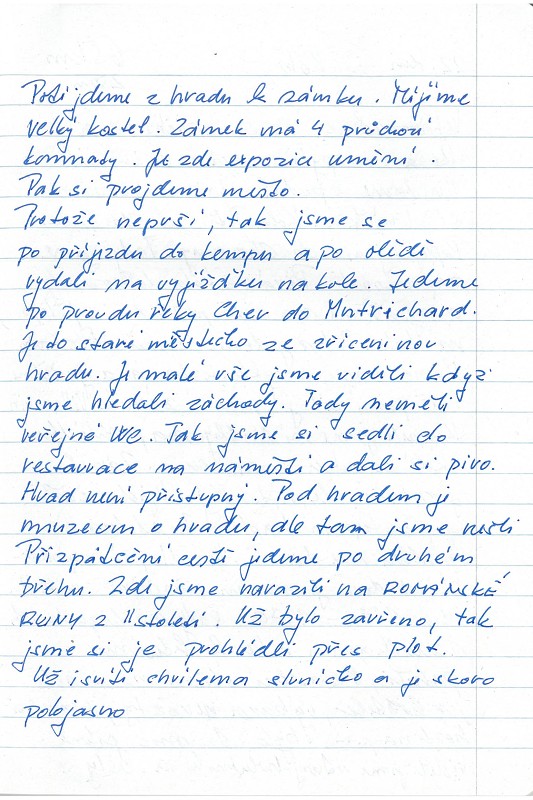 Poté jdeme z hradu k zámku. Míjíme
velký kostel. Zámek má 4 průchozí
komnaty. Je zde expozice umění.
Pak si projdeme město.
Protože neprší, tak jsme se
po příjezdu do kempu a po obědě
vydali na vyjížďku na kole. Jedeme
po proudu řeky Cher do Mntrichard.
Je to staré městečko ze zříceninou
hradu. Je malé vše jsme viděli když
jsme hledali záchody. Tady neměli
veřejné WC. Tak jsme si sedli do
restaurace na náměstí a dali si pivo.
Hrad není přístupný. Pod hradem je
muzeum o hradu, ale tam jsme nešli
Při zpáteční cestě jedeme po druhém
břehu. Zde jsme narazili na ROMÁNSKÉ
RUINY z 11 století. Už bylo zavřeno, tak
jsme si je prohlédli přes plot.
Už i svítí chvílema sluníčko a je skoro
polojasno